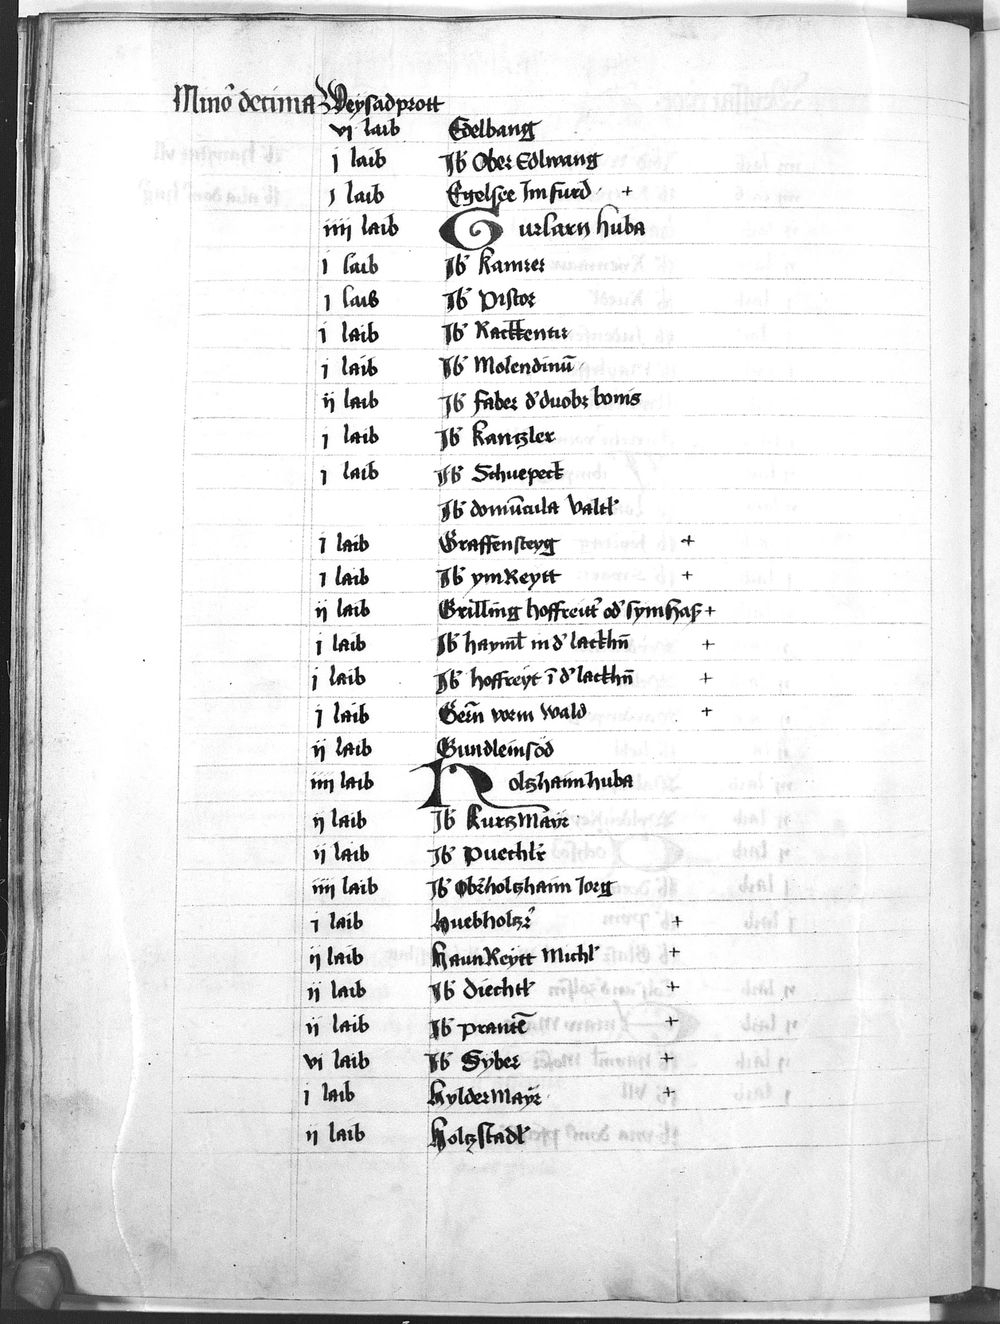 Mino᷒ decima Weysadprott
vj laib Edelbang
j laib Jb᷒ Ober Edlwang
j laib Egelsee Jm furd +
iiij laib Gurlarn huba
j laib Jb᷒ kamrer
j laib Jb᷒ Pistor
j laib Jb᷒
j laib Jb᷒ Molendinū
ij laib Jb᷒ faber d᷒ duobꝫ bonis
j laib Jb᷒ kantzler
j laib Jb᷒ Schuepeck
Jb᷒ domūcula Valtl᷒
j laib Graffensteyg +
j laib Jb᷒ ym Reytt +
ij laib Grilling hoffreut᷒ od᷒ symhaß +
j laib Jb᷒ hayml in d᷒ lackhn̄ +
j laib Jb᷒ hoffreyt ī d᷒ lackhn̄ +
j laib Gern̄ vorm wald +
ij laib Gundleinsöd
iiij laib Holtzhaim huba
ij laib Jb᷒ kurtz Mayr
ij laib Jb᷒ Puechlr̄
iiij laib Jb᷒ Ob᷒holtzhaim Jorg
j laib huebholtzr᷒ +
ij laib haun Reytt Michl᷒ +
ij laib Jb᷒ Diechtl +
ij laib Jb᷒ +
vj laib Jb᷒ Syber +
j laib hylder Mayr +
ij laib holtzstadl᷒